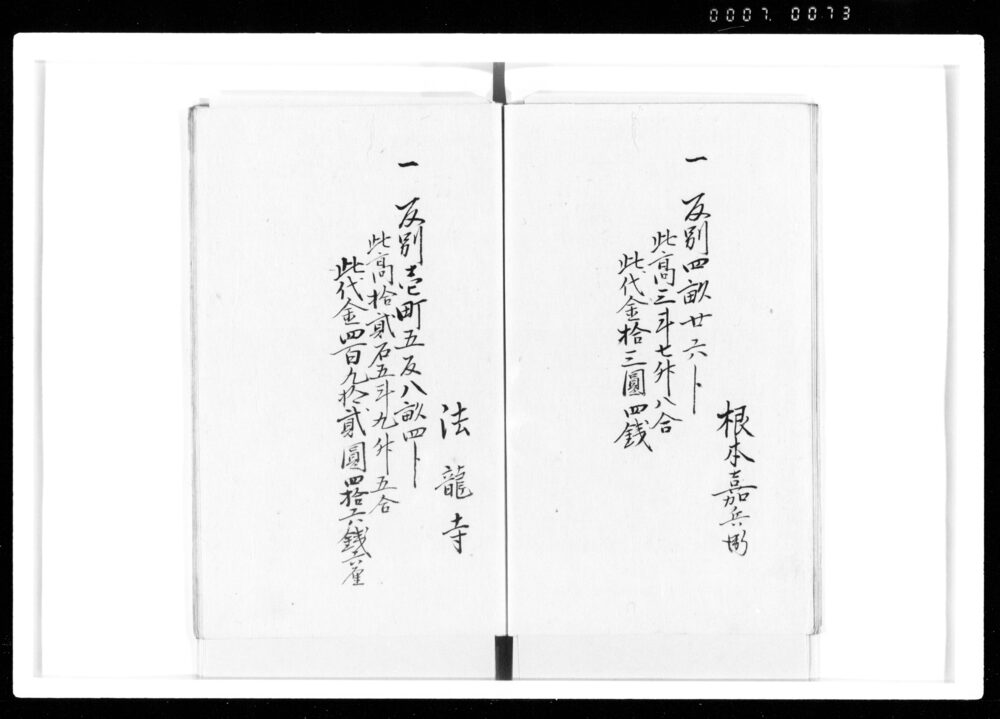 0007. 0073
一 反別四畝廿六卜
根本嘉兵衛
此高三斗七升八合
此代金拾三圓四錢
一 反別壱町五反八畝四卜
法龍寺
此高拾貳石五斗九升五合
此代金四百九拾貳圓四拾六錢六厘